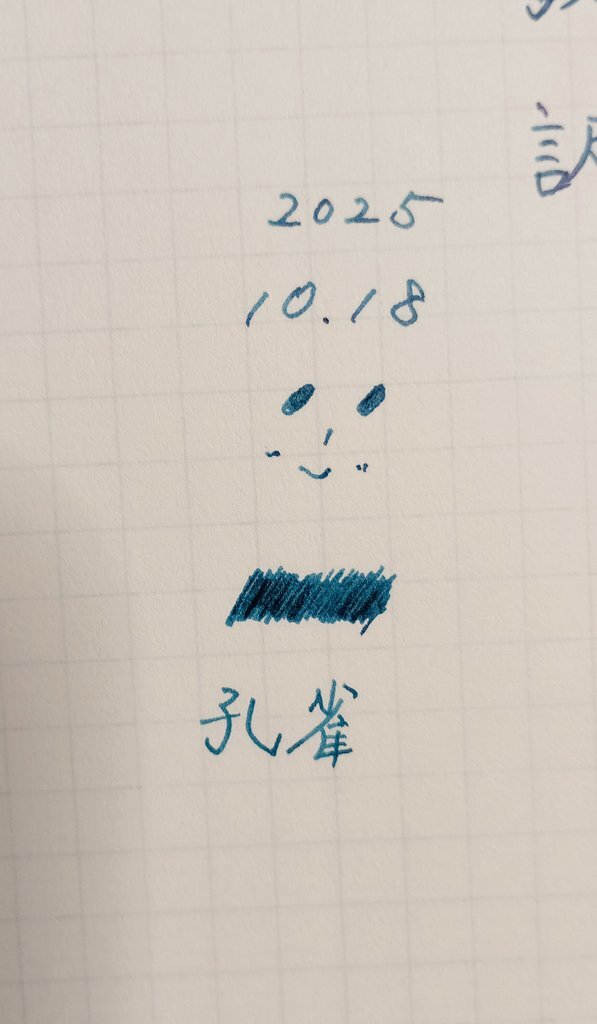 2025
10.18
孔雀